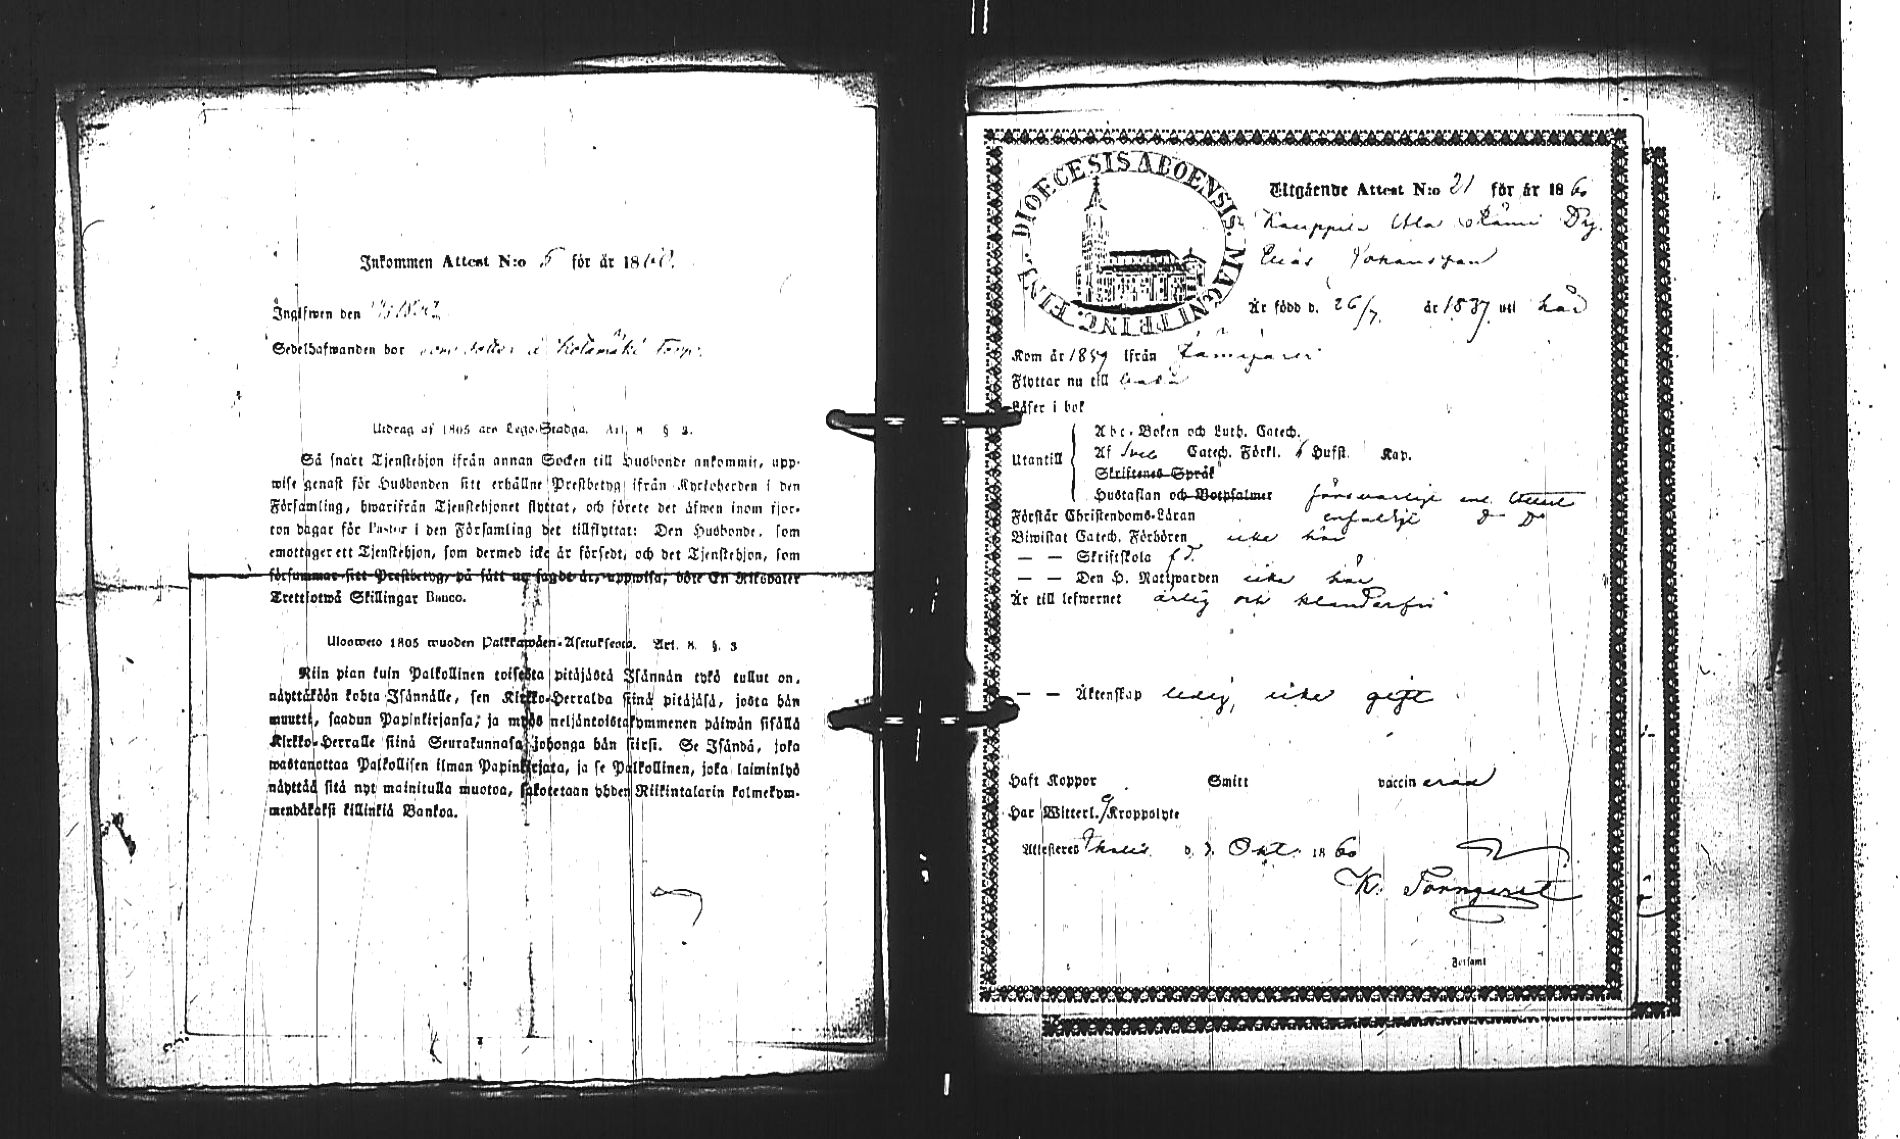 Inkommen Attest N:o 5 för år 1860.
Ingifwen den
Sedelhafwanden bor som i Kotamäki Torp.
Utdrag af 1805 års Lego-Stadga. Art. 8 § 3.
Så snart Tjenstehjon ifrån annan Socken till Husbonde ankommit, upp-
wise genast för Husbonden sitt erhållne Prestbetyg ifrån Kyrkoherden i den
Församling, hwarifrån Tjenstehjonet flyttat, och förete det äfwen inom fjor-
ton dagar för Pastor i den Församling det tillflyttat: Den Husbonde, som
emottager ett Tjenstehjon, som dermed icke är försedt, och det Tjenstehjon, som
försummar sitt Prestbetyg, på sätt nu sagdt är, uppwisa, böte En Riksdaler
Trettiotwå Skillingar Banco.
Uloswето 1805 wuoden Palkkawäen-Asetuksesta. Art. 8. §. 3
Niin pian kuin Palkollinen toisesta pitäjästä Isännän tykö tullut on,
näyttäköön kohta Isännälle, sen Kirkko-Herralda siinä pitäjäsä, josta hän
muutti, saadun Papinkirjansa; ja myös neljäntoistakymmenen päiwän sisällä
Kirkko-Herralle siinä Seurakunnasa johonga hän siirsi. Se Isändä, joka
wastanottaa Palkollisen ilman Papinkirjata, ja se Palkollinen, joka laiminlyö
näyttää sitä nyt mainitulla muotoa, sakotetaan yhden Riikintalarin kolmekym-
mendäkaksi killinkiä Bankoa.
DIOECESIS ABOENSIS. MAGNI PRINC. FINL.
Utgående Attest N:o 21 för år 1860
Kauppila Dg.
Elias Johansson
Är född d. 26/7. år 1837. uti här
Kom år 1859 ifrån Jämijärvi
Flyttar nu till
Läser i bok
Abc-Boken och Luth. Catech.
Utantill Af Sveb Catech. Förkl. 6 Hufst. Kap.
Skriftenes Språk
Hustaflan och Botpsalmer försvarlige
Förstår Christendoms-Läran enfaldigt
Biwistat Catech. Förhören icke här
— — Skriftskola f. d.
— — Den H. Nattwarden icke här
Är till lefwernet ärlig och klanderfri
— — Äktenskap ledig, icke gift
Haft Koppor Smitt vaccinerad
Har Witterl. Kroppslyte
Attesteras Ikalis d. Okt. 1860